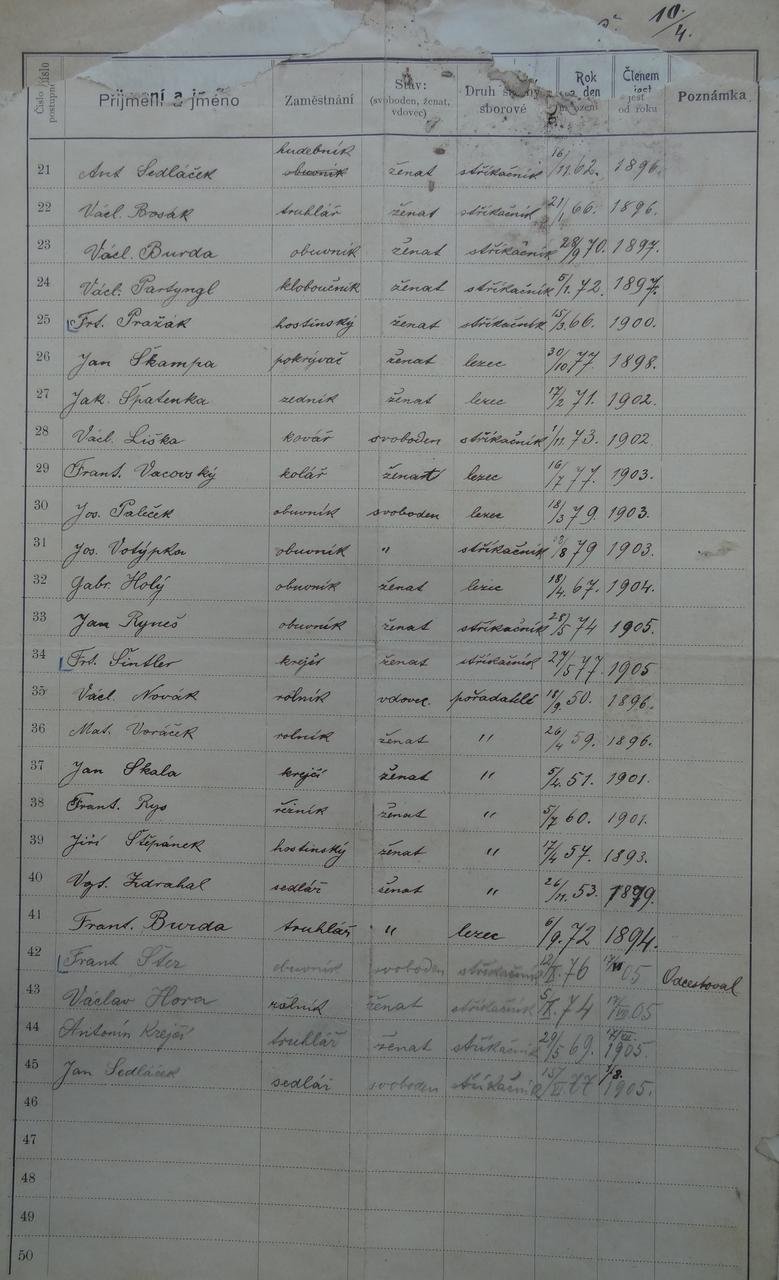 10/4.
Číslo postupné
Příjmení a jméno
Zaměstnání
Stav: (svoboden, ženat, vdovec)
Druh služby sborové
Rok a den narození
Členem jest od roku
Poznámka
21 Ant Sedláček hudebník obuvník ženat stříkačník 16/11.62. 1896.
22 Václ. Bosák truhlář ženat stříkačník 21/1 66. 1896.
23 Václ. Burda obuvník ženat stříkačník 28/9 70. 1897.
24 Václ. Partyngl kloboučník ženat stříkačník 5/1. 72. 1897.
25 Frt. Pražák hostinský ženat stříkačník 15/3.66. 1900.
26 Jan Škampa pokrývač ženat lezec 30/10 77. 1898.
27 Jak. Špatenka zedník ženat lezec 17/2 71. 1902.
28 Václ. Liška kovář svoboden stříkačník 1/11. 73. 1902
29 Frant. Vacovský kolář ženat lezec 16/7 77. 1903.
30 Jos. Paleček obuvník svoboden lezec 18/3 79. 1903.
31 Jos. Votýpka obuvník " stříkačník /8 79 1903.
32 Gabr. Holý obuvník ženat lezec 18/4. 67. 1904.
33 Jan Ryneš obuvník ženat stříkačník 28/5 74 1905.
34 Frt. Šintler krejčí ženat stříkačník 27/5 77. 1905
35 Václ. Novák rolník vdovec. pořadatelé 18/9. 50. 1896.
36 Mat. Voráček rolník ženat " 26/4 59. 1896.
37 Jan Skala krejčí ženat " 5/4. 51. 1901.
38 Frant. Rys řezník ženat " 5/7 60. 1901.
39 Jiří Štěpánek hostinský ženat " 17/4 57. 1893.
40 Vojt. Zdrahal sedlář ženat " 26/11. 53. 1879.
41 Frant. Burda truhlář " lezec 6/9. 72 1894.
42 Frant Šter obuvník svoboden stříkačník 12/ 76 05 Odcestoval
43 Václav Hora rolník ženat stříkačník 5/ 74 17/VII 05
44 Antonín Krejčí truhlář ženat stříkačník 29/5 69. 17/VII. 1905.
45 Jan Sedláček sedlář svoboden stříkačník 15/ 77 1/8. 1905.
46
47
48
49
50